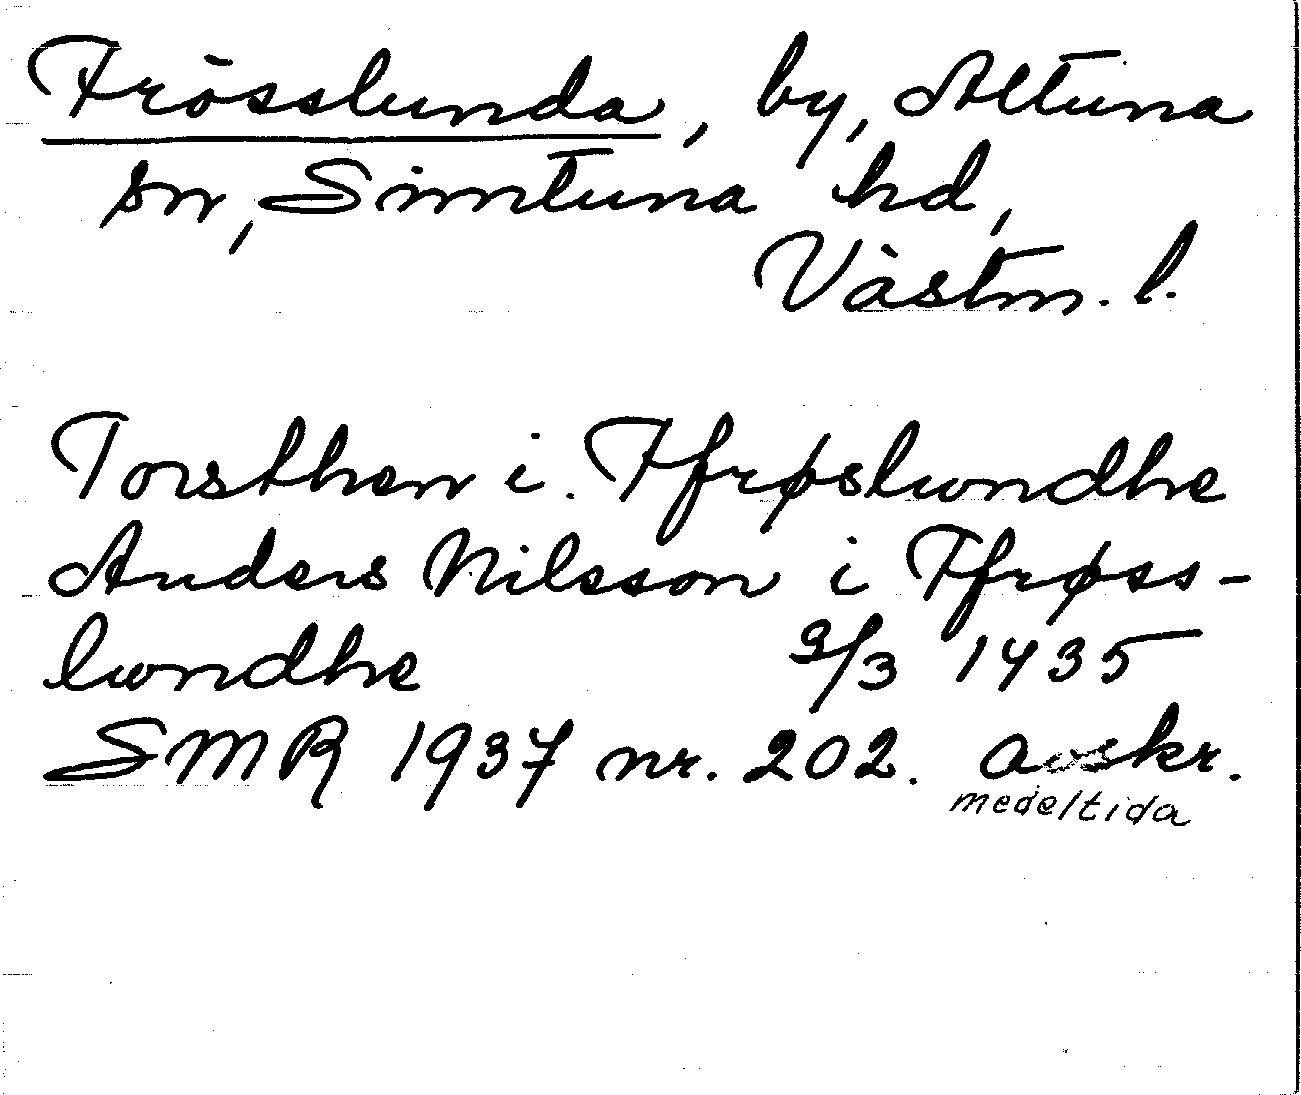 Frösslunda, by, Altuna
sn, Simtuna hd,
Västm. l.
Torsthen i. Ffrøslwndhe
Anders Nilsson i Ffrøss-
lwndhe 9/3 1435
SMR 1937 nr. 202. avskr.
medeltida